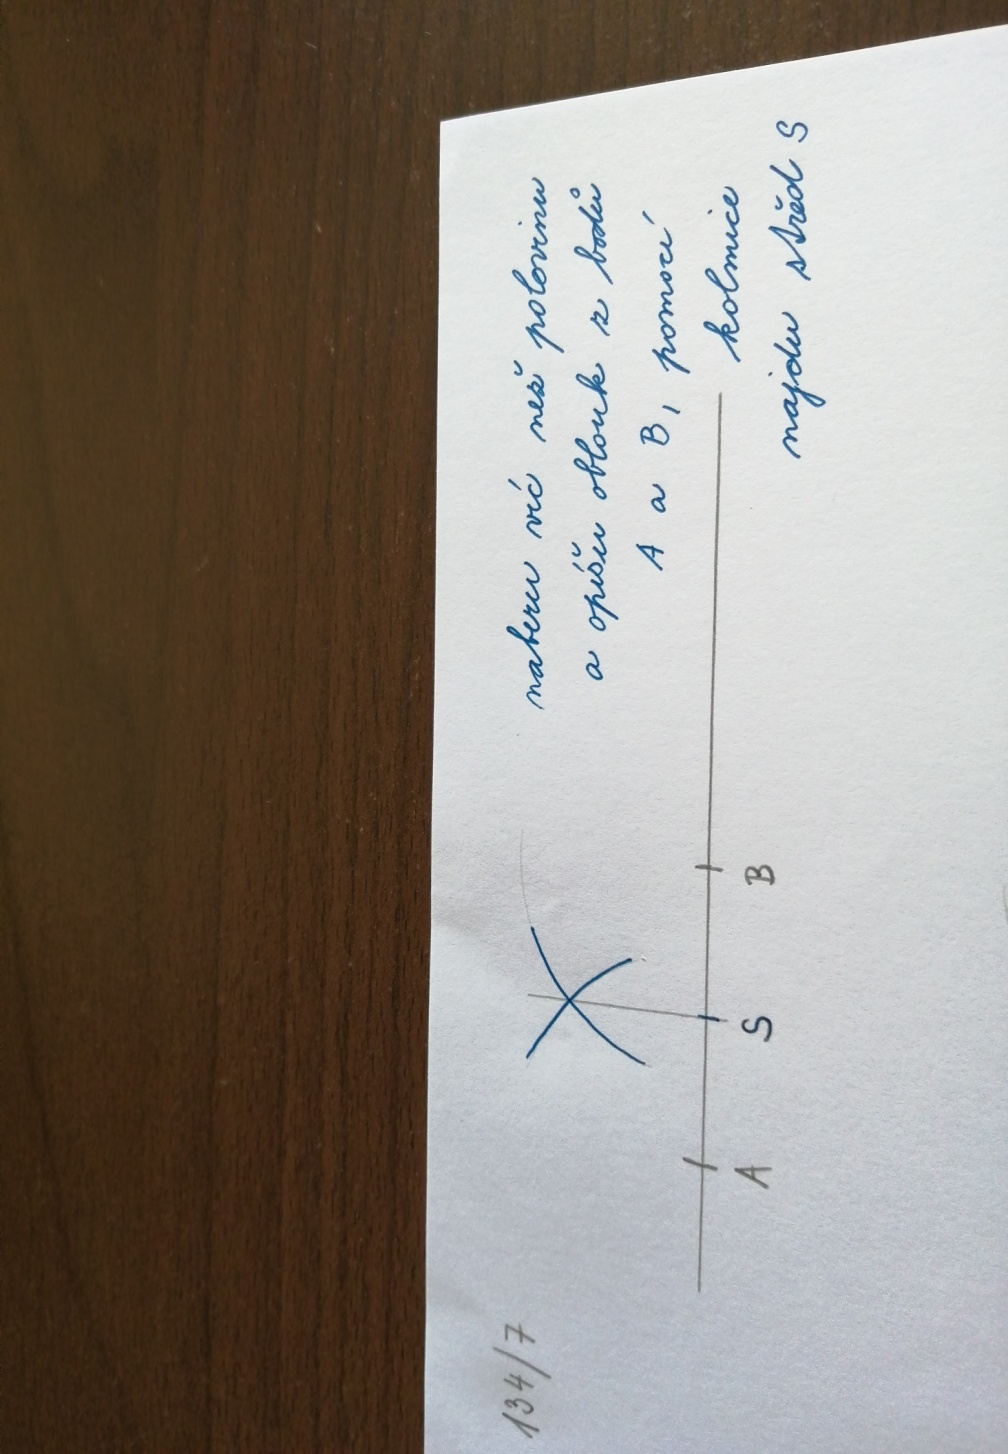 134/7
naberu víc než polovinu
a opíšu oblouk z bodů
A a B, pomocí
kolmice
najdu střed S
A S B